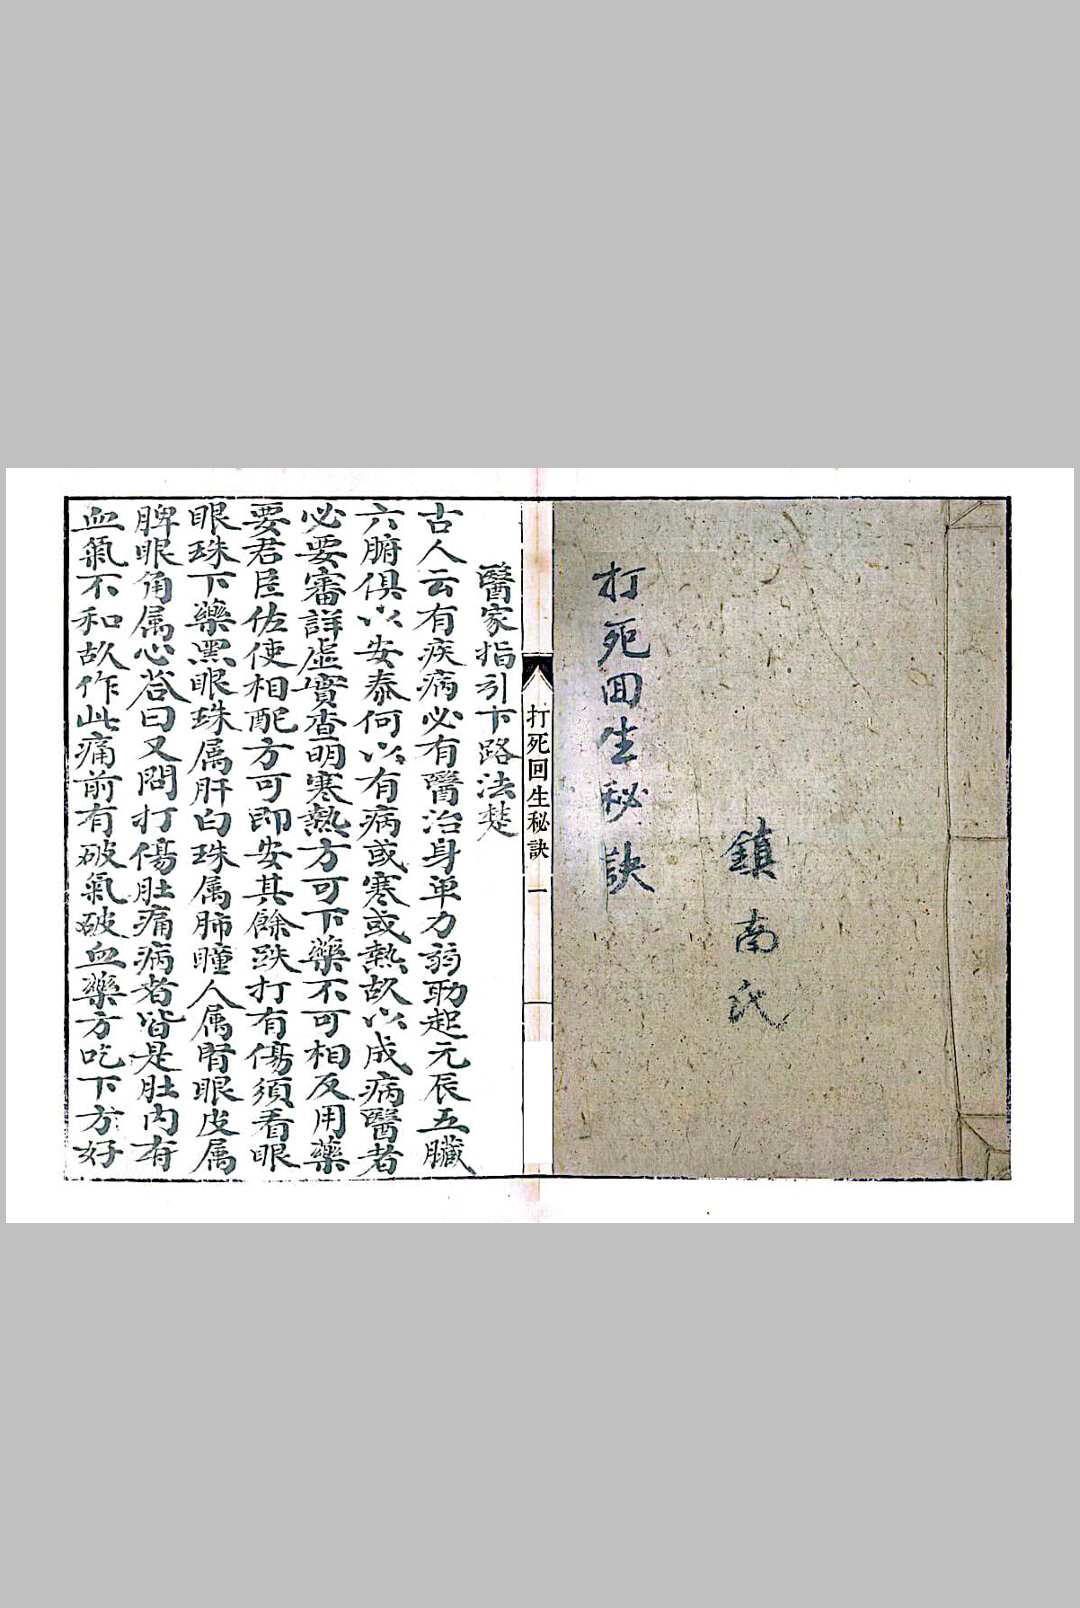 鎮南氏
打死回生秘訣
打死回生秘訣 一
醫家指引卞路法楚
古人云有疾病必有醫治身单力弱助起元辰五臟
六腑俱以安泰何以有病或寒或熱故以成病醫者
必要審詳虛實查明寒熱方可下藥不可相反用藥
要君臣佐使相配方可即安其餘跌打有傷須看眼
眼珠下藥黑眼珠属肝白珠属肺瞳人属腎眼皮属
脾眼角属心答曰又問打傷肚痛病者皆是肚内有
血氣不和故作此痛前有破氣破血藥方吃下方好